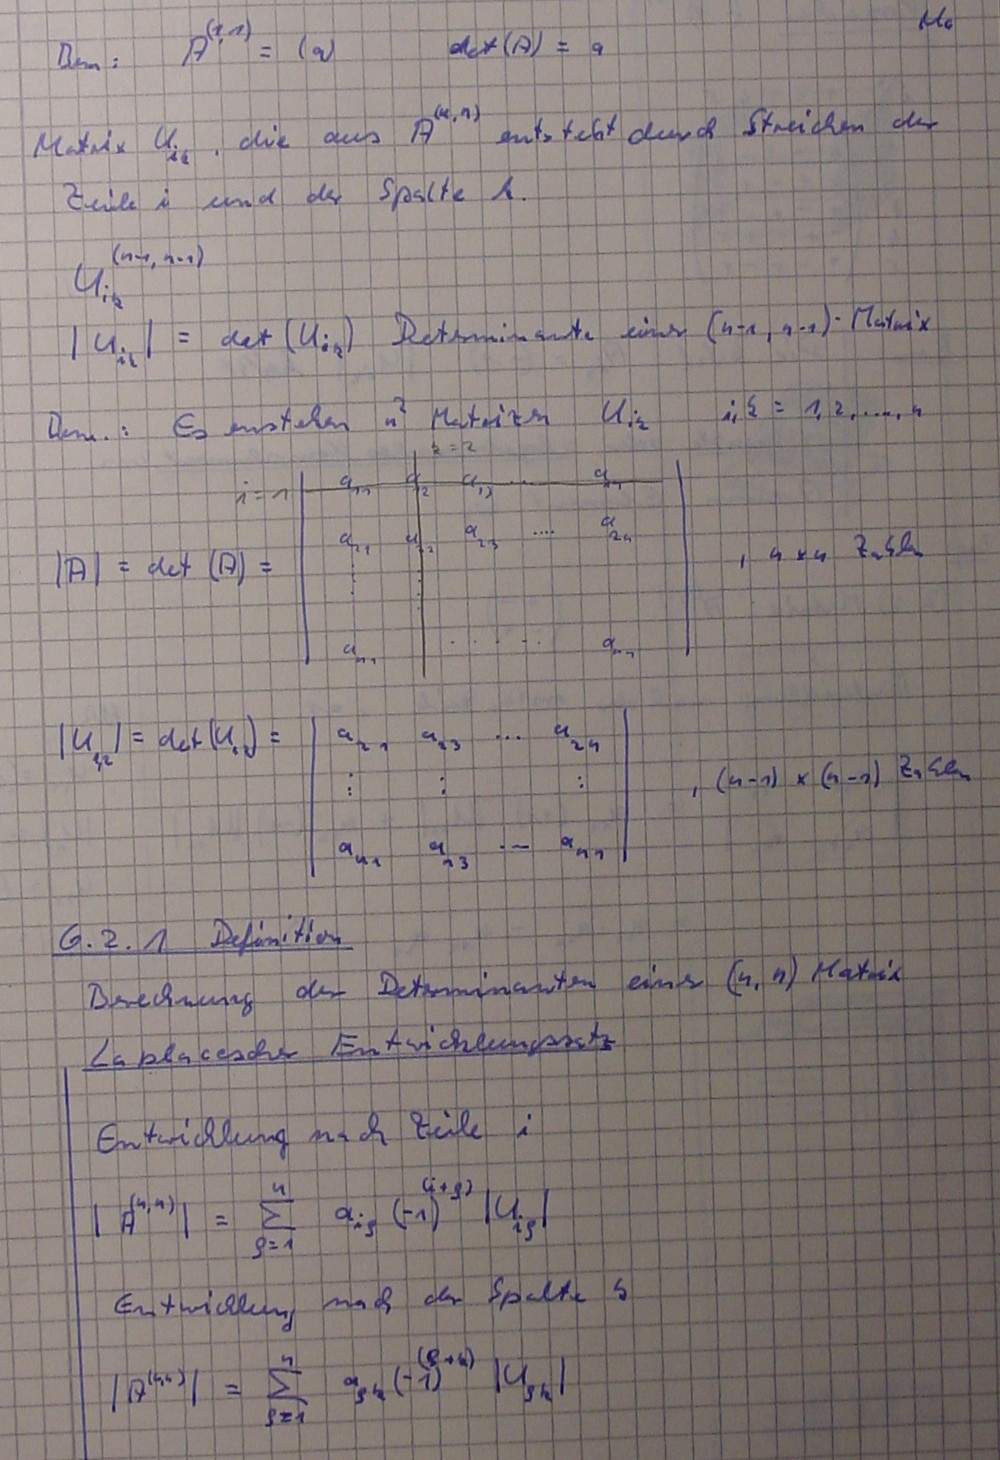 M6
Bem: A^(1,1) = (a) det(A) = a
Matrix U_ik, die aus A^(n,n) entsteht durch Streichen der
Zeile i und der Spalte k.
U_ik^(n-1, n-1)
|U_ik| = det(U_ik) Determinante einer (n-1, n-1)-Matrix
Bem.: Es enstehen n² Matrizen U_ik i,k = 1, 2, ...., n
k=2
i=1 a_11 a_12 a_13 ... a_1n
a_21 a_22 a_23 .... a_2n
|A| = det (A) = , n × n Zahlen
a_n1 ..... a_nn
|U_12| = det(U_12) = a_21 a_23 ... a_2n
⋮ ⋮ ⋮ , (n-1) × (n-1) Zahlen
a_n1 a_n3 ... a_nn
6.2.1 Definition
Berechnung der Determinanten einer (n, n) Matrix
Laplacescher Entwicklungssatz
Entwicklung nach Zeile i
|A^(n,n)| = ∑_{ρ=1}^{n} a_iρ (-1)^(i+ρ) |U_iρ|
Entwicklung nach der Spalte k
|A^(n,n)| = ∑_{ρ=1}^{n} a_ρk (-1)^(ρ+k) |U_ρk|